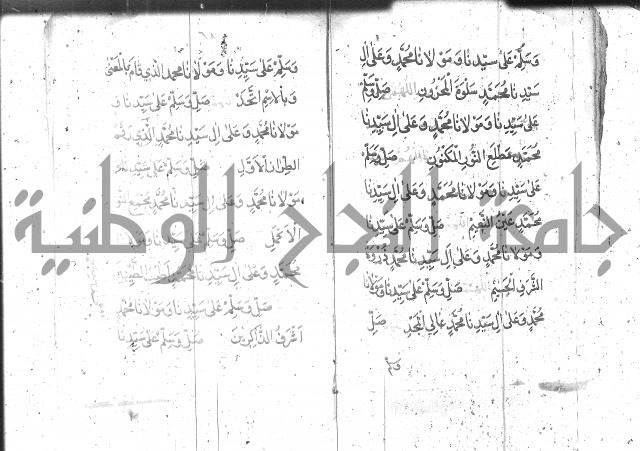 وَسَلِّمْ عَلَى سَيِّدِنَا وَمَوْلَانَا مُحَمَّدٍ وَعَلَى اٰلِ
سَيِّدِنَا مُحَمَّدٍ سَلْوَةِ الْمَحْزُونِ اللهم صَلِّ وَسَلِّمْ
عَلَى سَيِّدِنَا وَمَوْلَانَا مُحَمَّدٍ وَعَلَى اٰلِ سَيِّدِنَا
مُحَمَّدٍ مَطْلَعِ النُّورِ الْمَكْنُونِ اللهم صَلِّ وَسَلِّمْ
عَلَى سَيِّدِنَا وَمَوْلَانَا مُحَمَّدٍ وَعَلَى اٰلِ سَيِّدِنَا
مُحَمَّدٍ عَيْنِ النَّعِيمِ صَلِّ وَسَلِّمْ عَلَى سَيِّدِنَا
وَمَوْلَانَا مُحَمَّدٍ وَعَلَى اٰلِ سَيِّدِنَا مُحَمَّدٍ ذُرْوَةِ
الشَّرَفِ الْجَسِيمِ صَلِّ وَسَلِّمْ عَلَى سَيِّدِنَا وَمَوْلَانَا
مُحَمَّدٍ وَعَلَى اٰلِ سَيِّدِنَا مُحَمَّدٍ عَالِي الْمَجْدِ صَلِّ
وَسَلِّمْ
وَسَلِّمْ عَلَى سَيِّدِنَا وَمَوْلَانَا مُحَمَّدٍ الَّذِي قَامَ بِالْمَعْنَى
وَبِالْاسْمِ اتَّحَدَ صَلِّ وَسَلِّمْ عَلَى سَيِّدِنَا وَ
مَوْلَانَا مُحَمَّدٍ وَعَلَى اٰلِ سَيِّدِنَا مُحَمَّدٍ الَّذِي
الطِّرَازَ الْاَوَّلِ صَلِّ وَسَلِّمْ عَلَى سَيِّدِنَا
مَوْلَانَا مُحَمَّدٍ وَعَلَى اٰلِ سَيِّدِنَا مُحَمَّدٍ
صَلِّ وَسَلِّمْ عَلَى سَيِّدِنَا
مُحَمَّدٍ وَعَلَى اٰلِ سَيِّدِنَا مُحَمَّدٍ
صَلِّ وَسَلِّمْ عَلَى سَيِّدِنَا وَمَوْلَانَا مُحَمَّدٍ
اَشْرَفِ الذَّاكِرِينَ صَلِّ وَسَلِّمْ عَلَى سَيِّدِنَا
جامعة النجاح الوطنية